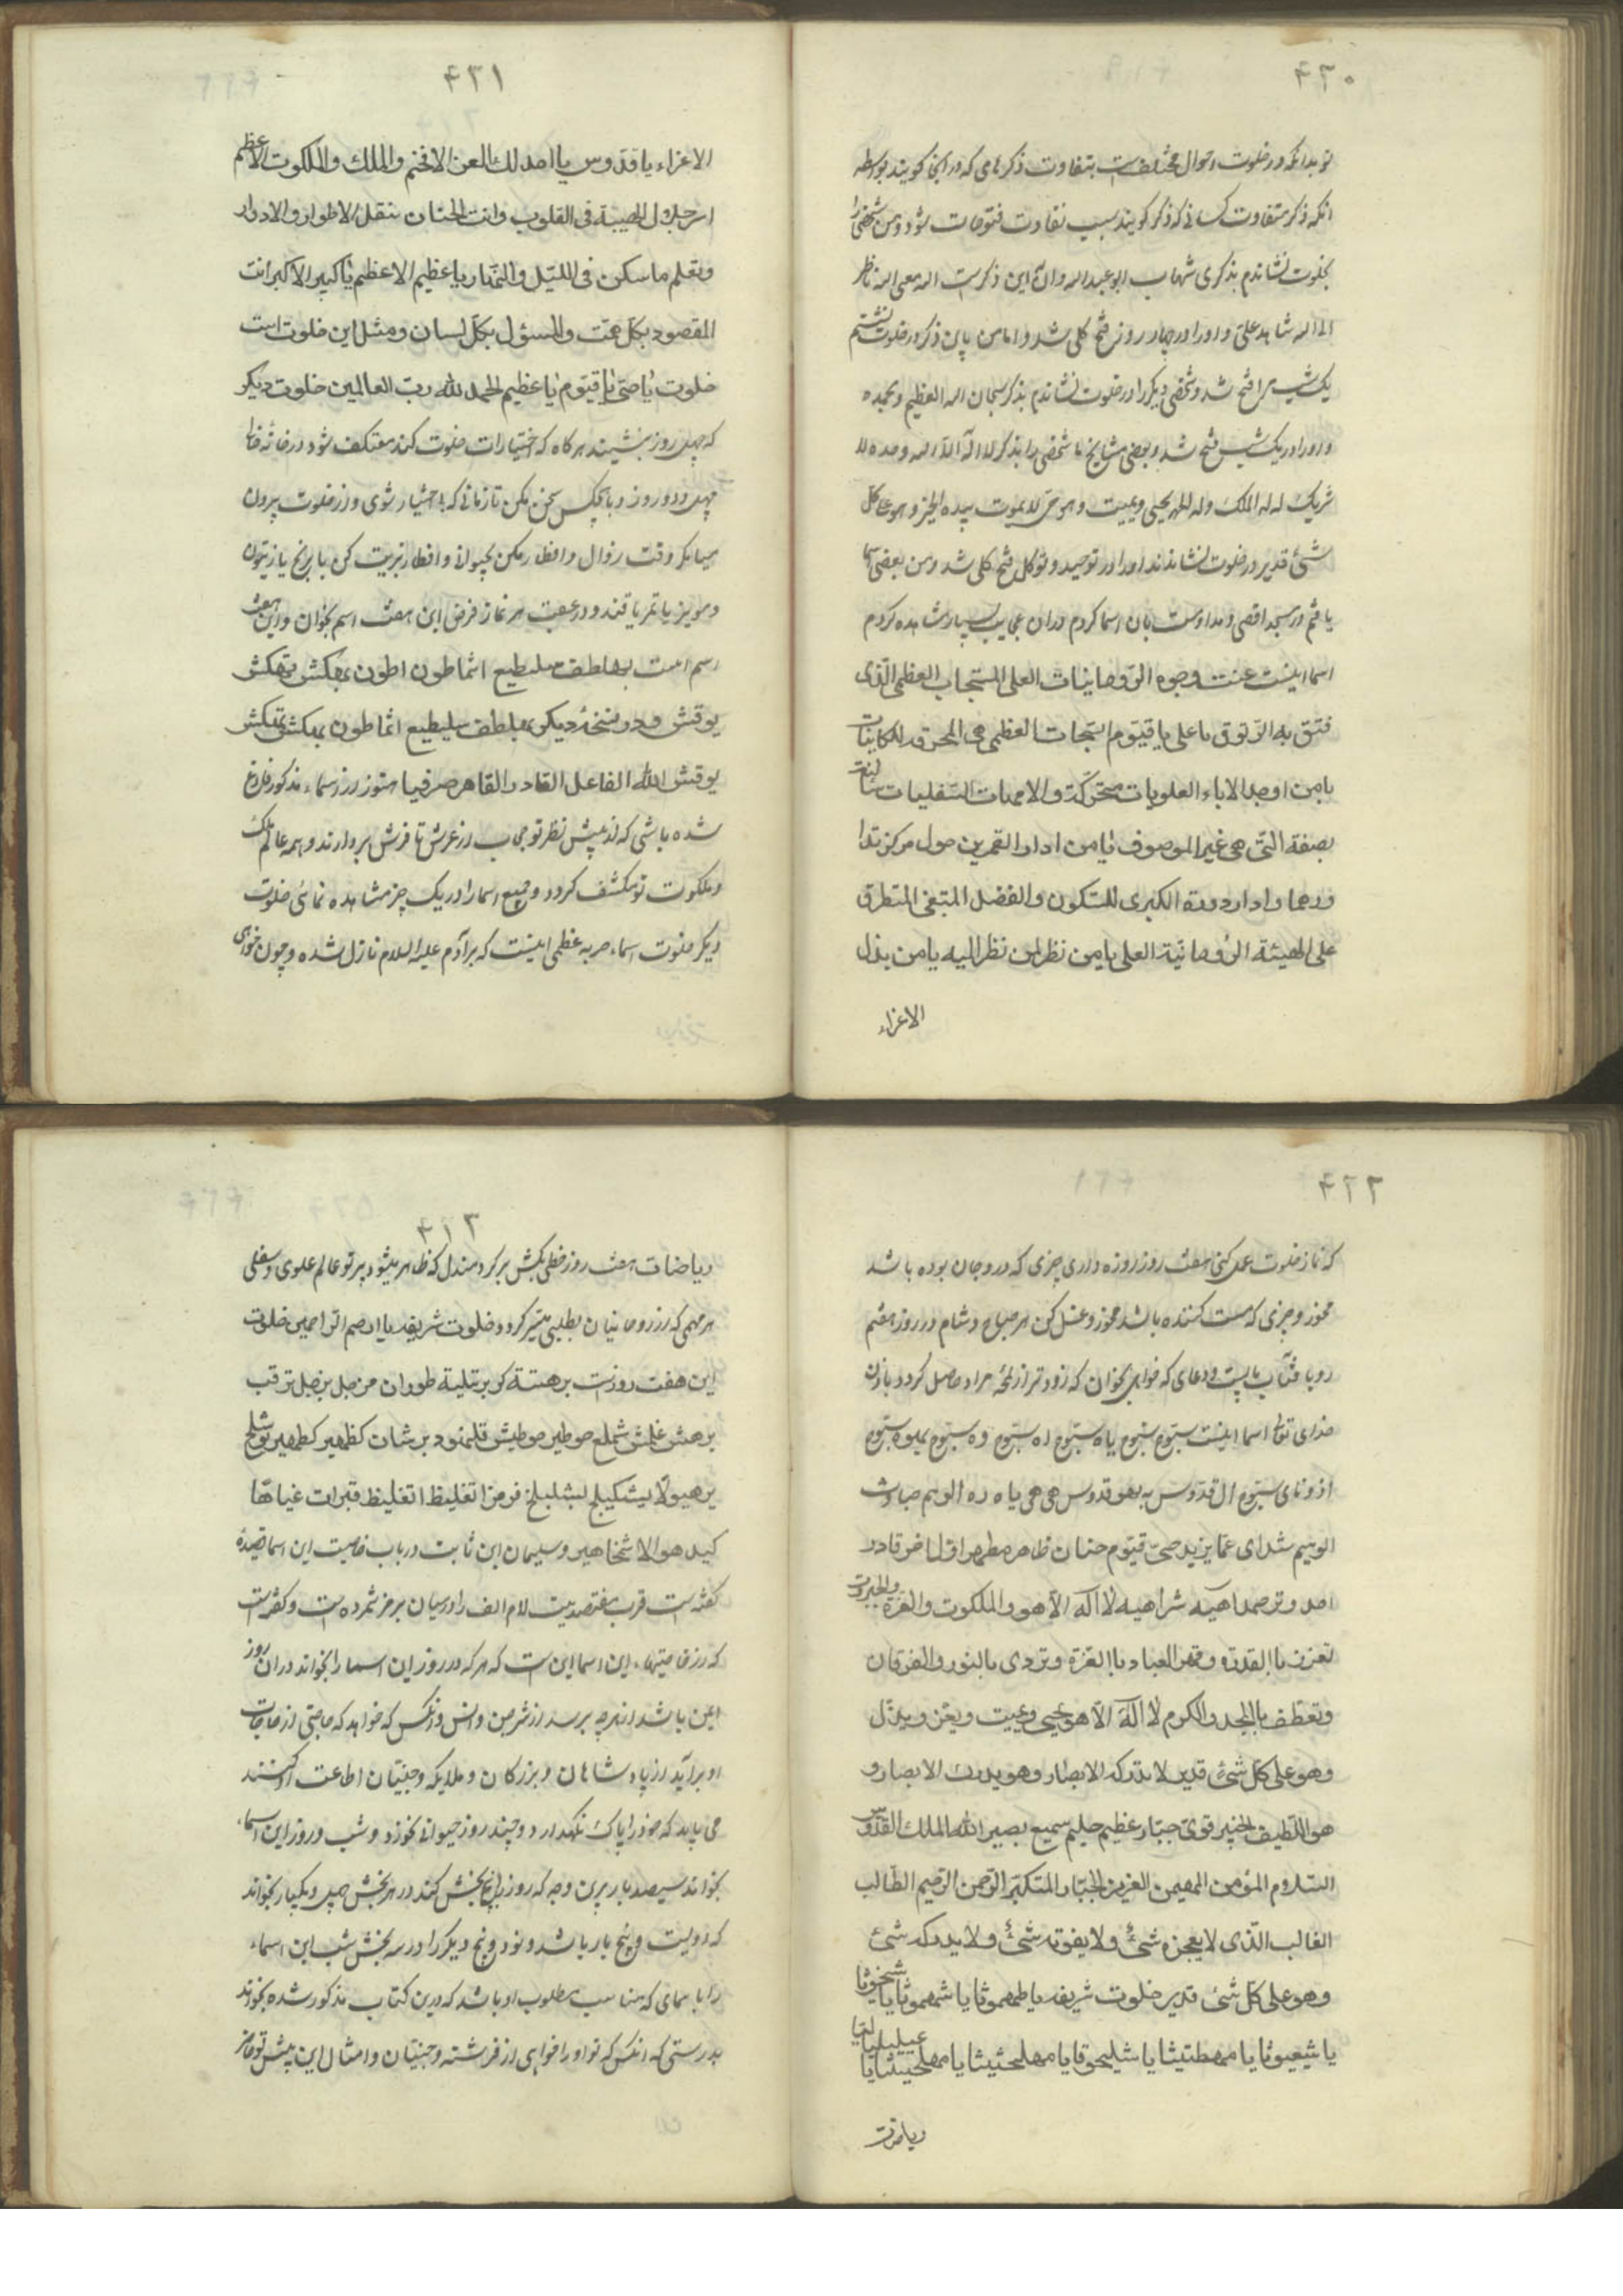 ۴۲۰
تو بدانکه در خلوت احوال مختلفست بتفاوت ذکرهای که در آنجا کویند بواسطه
آنکه ذکر متفاوت کسانی که ذکر کویند بسبب تفاوت فتوحات شود و من شخصی را
بخلوت نشاندم بذکری شهاب ابو عبدالله و آن این ذکرست الله معی الله ناظر
الی الله شاهد علی و او را در چهار روز فتح کلی شد و اما من باین ذکر در خلوت نشستم
یک شب مرا فتح شد و شخصی دیکر را در خلوت نشاندم بذکر سبحان الله العظیم و بحمده
و او را در یک شب فتح شد و بعضی مشایخ ما شخصی را بذکر لا اله الا الله وحده لا
شریک له له الملک وله الحمد یحیی ویمیت وهو حی لا یموت بیده الخیر وهو علی کل
شئ قدیر در خلوت نشاندند او را در توحید و توکل فتح کلی شد و من بعضی اسما
یافتم در مسجد اقصی و مداومت بان اسما کردم در آن عجایب بسیار مشاهده کردم
اسما اینست عنت وجوه الروحانیات العلی المستجاب العظمی الذی
فتق به الرتوق یا علی یا قیوم العظمی هی المحرق للکاینات
یامن اوجد الاباء العلویات متحرکة والامهات السفلیات ساکنة
بصفة التی هی غیر الموصوف یامن ادار القمرین حول مرکز تدا
ورهما وادار دورة الکبری للتکون والفضل المتبغی المتطرق
علی الهیئة الروحانیة العلی یا من نظر لمن نظر الیه یا من بذل
الاعزاء
۴۲۱
الاعزاء یا قدوس یا احد لک العز الافخم والملک والملکوت الاعظم
اسر جلال الهیبة فی القلوب وانت الحنان بنقل الاطوار والادوار
وتعلم ما سکن فی اللیل والنهار یا عظیم الاعظم یا کبیر الاکبر انت
المقصود بکل همت والمسؤل بکل لسان ومثل این خلوت است
خلوت یا حی یا قیوم یا عظیم الحمد لله رب العالمین خلوت دیکر
که چهل روز بنشیند هرکاه که اختیارات خلوت کند معتکف شود در خانه خالی
چهل و دو روز و با هیچکس سخن مکن تا زمانی که هشیار شوی و از خلوت بیرون
میا مکر وقت زوال و افطار مکن بحیوانی و افطار بزیت کن یا برنج یا زیتون
و مویز یا تمر یا قند و در عقب هر نماز فرض این هفت اسم بخوان و این هفت
اسم است بهلطف سلیطیع اثماطون اطون بهکش بتهکش
یوقش و در نسخهٔ دیکر بهلطف سلیطیع اثماطون بهکش بتهکش
یوقش الله الفاعل القادر القاهر صرفیا هنوز از اسماء مذکور فارغ
شده باشی که از پیش نظر تو حجاب از عرش تا فرش بردارند و همه عالم ملک
و ملکوت تو مکشف کردد و جمیع اسما را در یک چیز مشاهده نمائی خلوت
دیکر خلوت اسماء حربه عظمی اینست که بر آدم علیه السلام نازل شده و چون خواهی
۴۲۲
که نماز خلوت عمل کنی هفت روز روزه داری چیزی که در او جان بوده باشد
مخور و چیزی که مست کننده باشد مخور و غسل کن هر صباح و شام در روز هفتم
رو بافتاب بایست و دعای که خواهی بخوان که زودتر از لمحه مراد حاصل کردد باذن
خدای تعالی اسما اینست سبوم سبوم یاه سبوم اه سبوم وه سبوم سبوم
ادونای سبوم ال قدوس یهو قدوس هی هی یاه ره الوهیم صباوث
الوهیم شدای عمایزید حی قیوم حنان ظاهر مطهر اول اخر قادر
احد وتر صمد اهیه شراهیه لا اله الا هو والملکوت والعزة والجبروت
تعزز باالقدرة وقهر العباد باالعزة وتردی بالنور والفرقان
وتعطف بالمجد والکرم لا اله الا هو یحیی ویمیت ویعز ویذل
وهو علی کل شئ قدیر لا تدرکه الابصار وهو یدرک الابصار و
هو اللطیف الخبیر قوی جبار عظیم حلیم سمیع بصیر الله الملک القدوس
السلام المؤمن المهیمن العزیز الجبار المتکبر الرحمن الرحیم الطالب
الغالب الذی لا یعجزه شئ ولا یفوته شئ ولا یدرکه شئ
وهو علی کل شئ قدیر خلوت شریفه یا طمهموثا یا شمهموثا یا شیخوثا
یا شیعیوثا یا مهطتیثا یا شلیحوقا یا مهلحثیثا یا مهلحیثا یا
ریاضات
۴۱۳
ریاضات هفت روز خطی بکش بر کرد مندل که ظاهر میشود بر تو عالم علوی و سفلی
هر مهمی که از روحانیان بطلبی میسر کردد خلوت شریفه یا ارحم الراحمین خلوت
این هفت روزست برهتیة کریر تتلیة طوران مزجل بزجل ترقب
برهش غلمش شملخ حوطیر حوطیش قلنهود برشان کظهیر کظهیر بوشلخ
برهیولا بشکیلخ فزمز اتغلیظ اتغلیظ قبرات غیاها
کیدهولا شخاهیر و سلیمان ابن ثابت در باب خاصیت این اسما قصیده
گفته است قرب هفتصد بیت لام الف را در میان برمز شمرده است و کفته است
که از خاصیتهاء این اسما این است که هر که در روز این اسما را بخواند در آن روز
ایمن باشد از هر چه برسد از شر جن و انس و انکس که خواهد که حاجتی از حاجات
او برآید از پادشاهان و بزرکان و ملایکه و جنیان اطاعت او کنند
می باید که خود را پاک نکهدارد و چند روز حیوانی نخورد و شب و روز این اسماء
بخواند سیصد بار برین وجه که روز پنج بخش کند در هر بخش چهل و یکبار بخواند
که دویست و پنج بار باشد و نود و پنج دیکر را در سه بخش شب این اسماء
را با اسمای که مناسب مطلوب او باشد که درین کتاب مذکور شده بخواند
بدرستی که انکس که تو او را خواهی از فرشته و جنیان و امثال این پیش تو حاضر